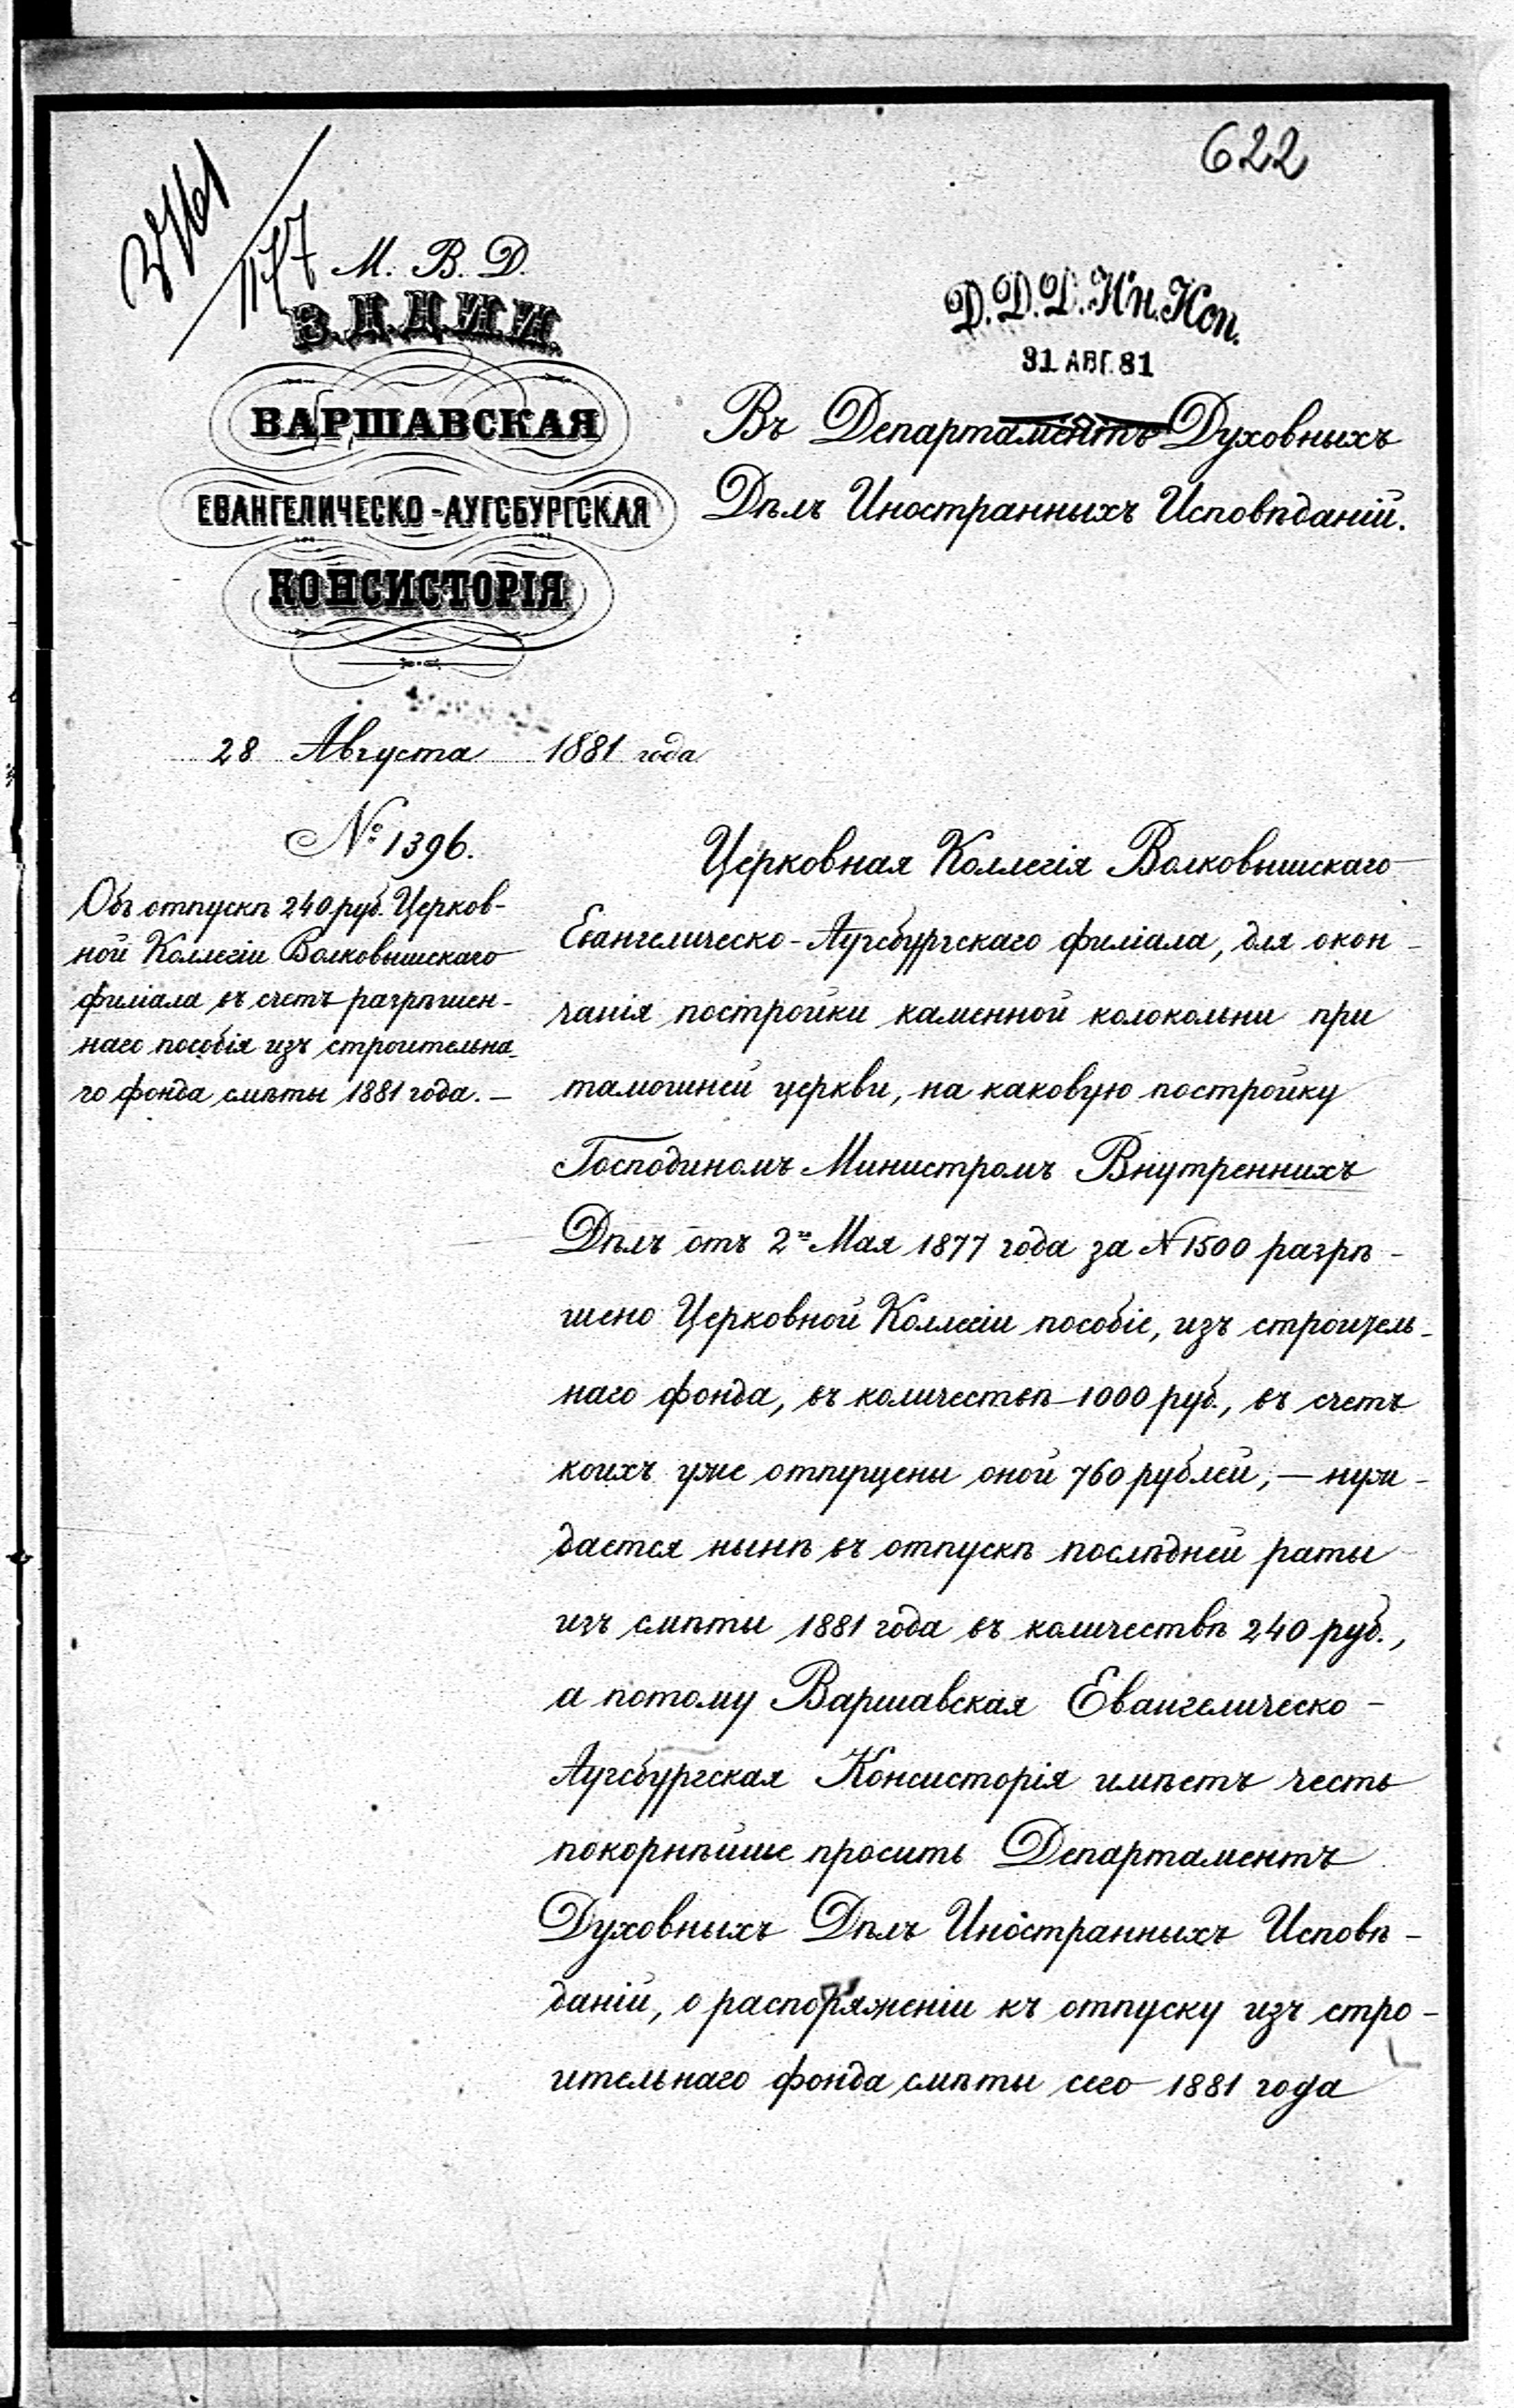 622
М. В. Д.
Д.Д.Д.Ин.Исп.
31 АВГ. 81
ВАРШАВСКАЯ
ЕВАНГЕЛИЧЕСКО-АУГСБУРГСКАЯ
КОНСИСТОРІЯ
Въ Департаментъ Духовныхъ
Дѣлъ Иностранныхъ Исповѣданій.
28 Августа 1881 года
№ 1396.
Объ отпускѣ 240 руб. Церков-
ной Коллегіи Волковышскаго
филіала въ счетъ разрѣшен-
наго пособія изъ строительна-
го фонда смѣты 1881 года. —
Церковная Коллегія Волковышскаго
Евангелическо-Аугсбургскаго филіала, для окон-
чанія постройки каменной колокольни при
тамошней церкви, на каковую постройку
Господиномъ Министромъ Внутреннихъ
Дѣлъ отъ 2го Мая 1877 года за N 1500 разрѣ-
шено Церковной Коллегіи пособіе, изъ строитель-
наго фонда, въ количествѣ 1000 руб., въ счетъ
коихъ уже отпущены оной 760 рублей, — нуж-
дается нынѣ въ отпускѣ послѣдней раты
изъ смѣты 1881 года въ количествѣ 240 руб.,
а потому Варшавская Евангелическо-
Аугсбургская Консисторія имѣетъ честь
покорнѣйше просить Департаментъ
Духовныхъ Дѣлъ Иностранныхъ Исповѣ-
даній, о распоряженіи къ отпуску изъ стро-
ительнаго фонда смѣты сего 1881 года